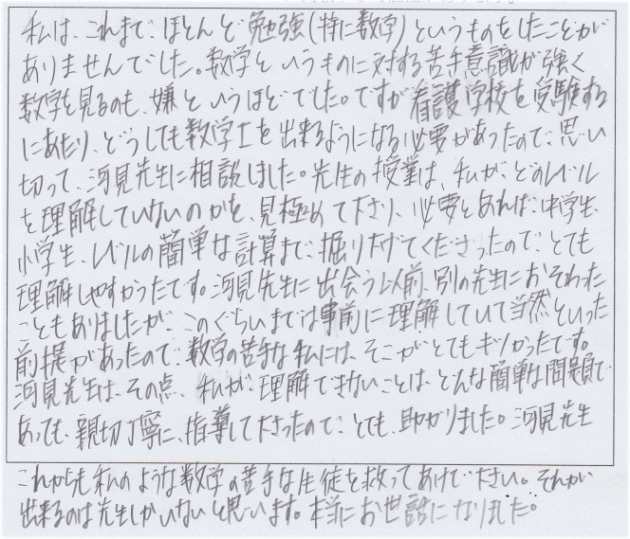 私は、これまで、ほとんど勉強(特に数学)というものをしたことが
ありませんでした。数学というものに対する苦手意識が強く
数学を見るのも、嫌というほどでした。ですが看護学校を受験する
にあたり、どうしても数学Iを出来るようになる必要があったので、思い
切って、河見先生に相談しました。先生の授業は、私が、どのレベル
を理解していないのかを、見極めて下さり、必要とあれば、中学生、
小学生、レベルの簡単な計算まで、掘り下げてくださったので、とても
理解しやすかったです。河見先生に出会う以前、別の先生におそわった
こともありましたが、このぐらいまでは事前に理解していて当然といった
前提があったので、数学の苦手な私には、そこがとてもキツかったです。
河見先生は、その点、私が、理解できないことは、どんな簡単な問題で
あっても、親切丁寧に、指導して下さったので、とても、助かりました。河見先生
これからも私のような数学の苦手な生徒を救ってあげて下さい。それが
出来るのは先生しかいないと思います。本当にお世話になりました。